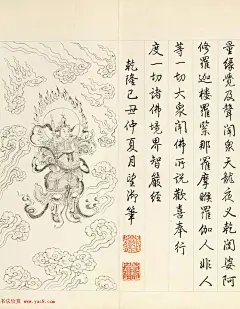 量緣覺及聲聞天龍夜叉乾闥婆阿
修羅迦樓羅緊那羅摩睺羅伽人非人
等一切大衆聞佛所說歡喜奉行
度一切諸佛境界智嚴經
乾隆己丑仲夏月望御筆